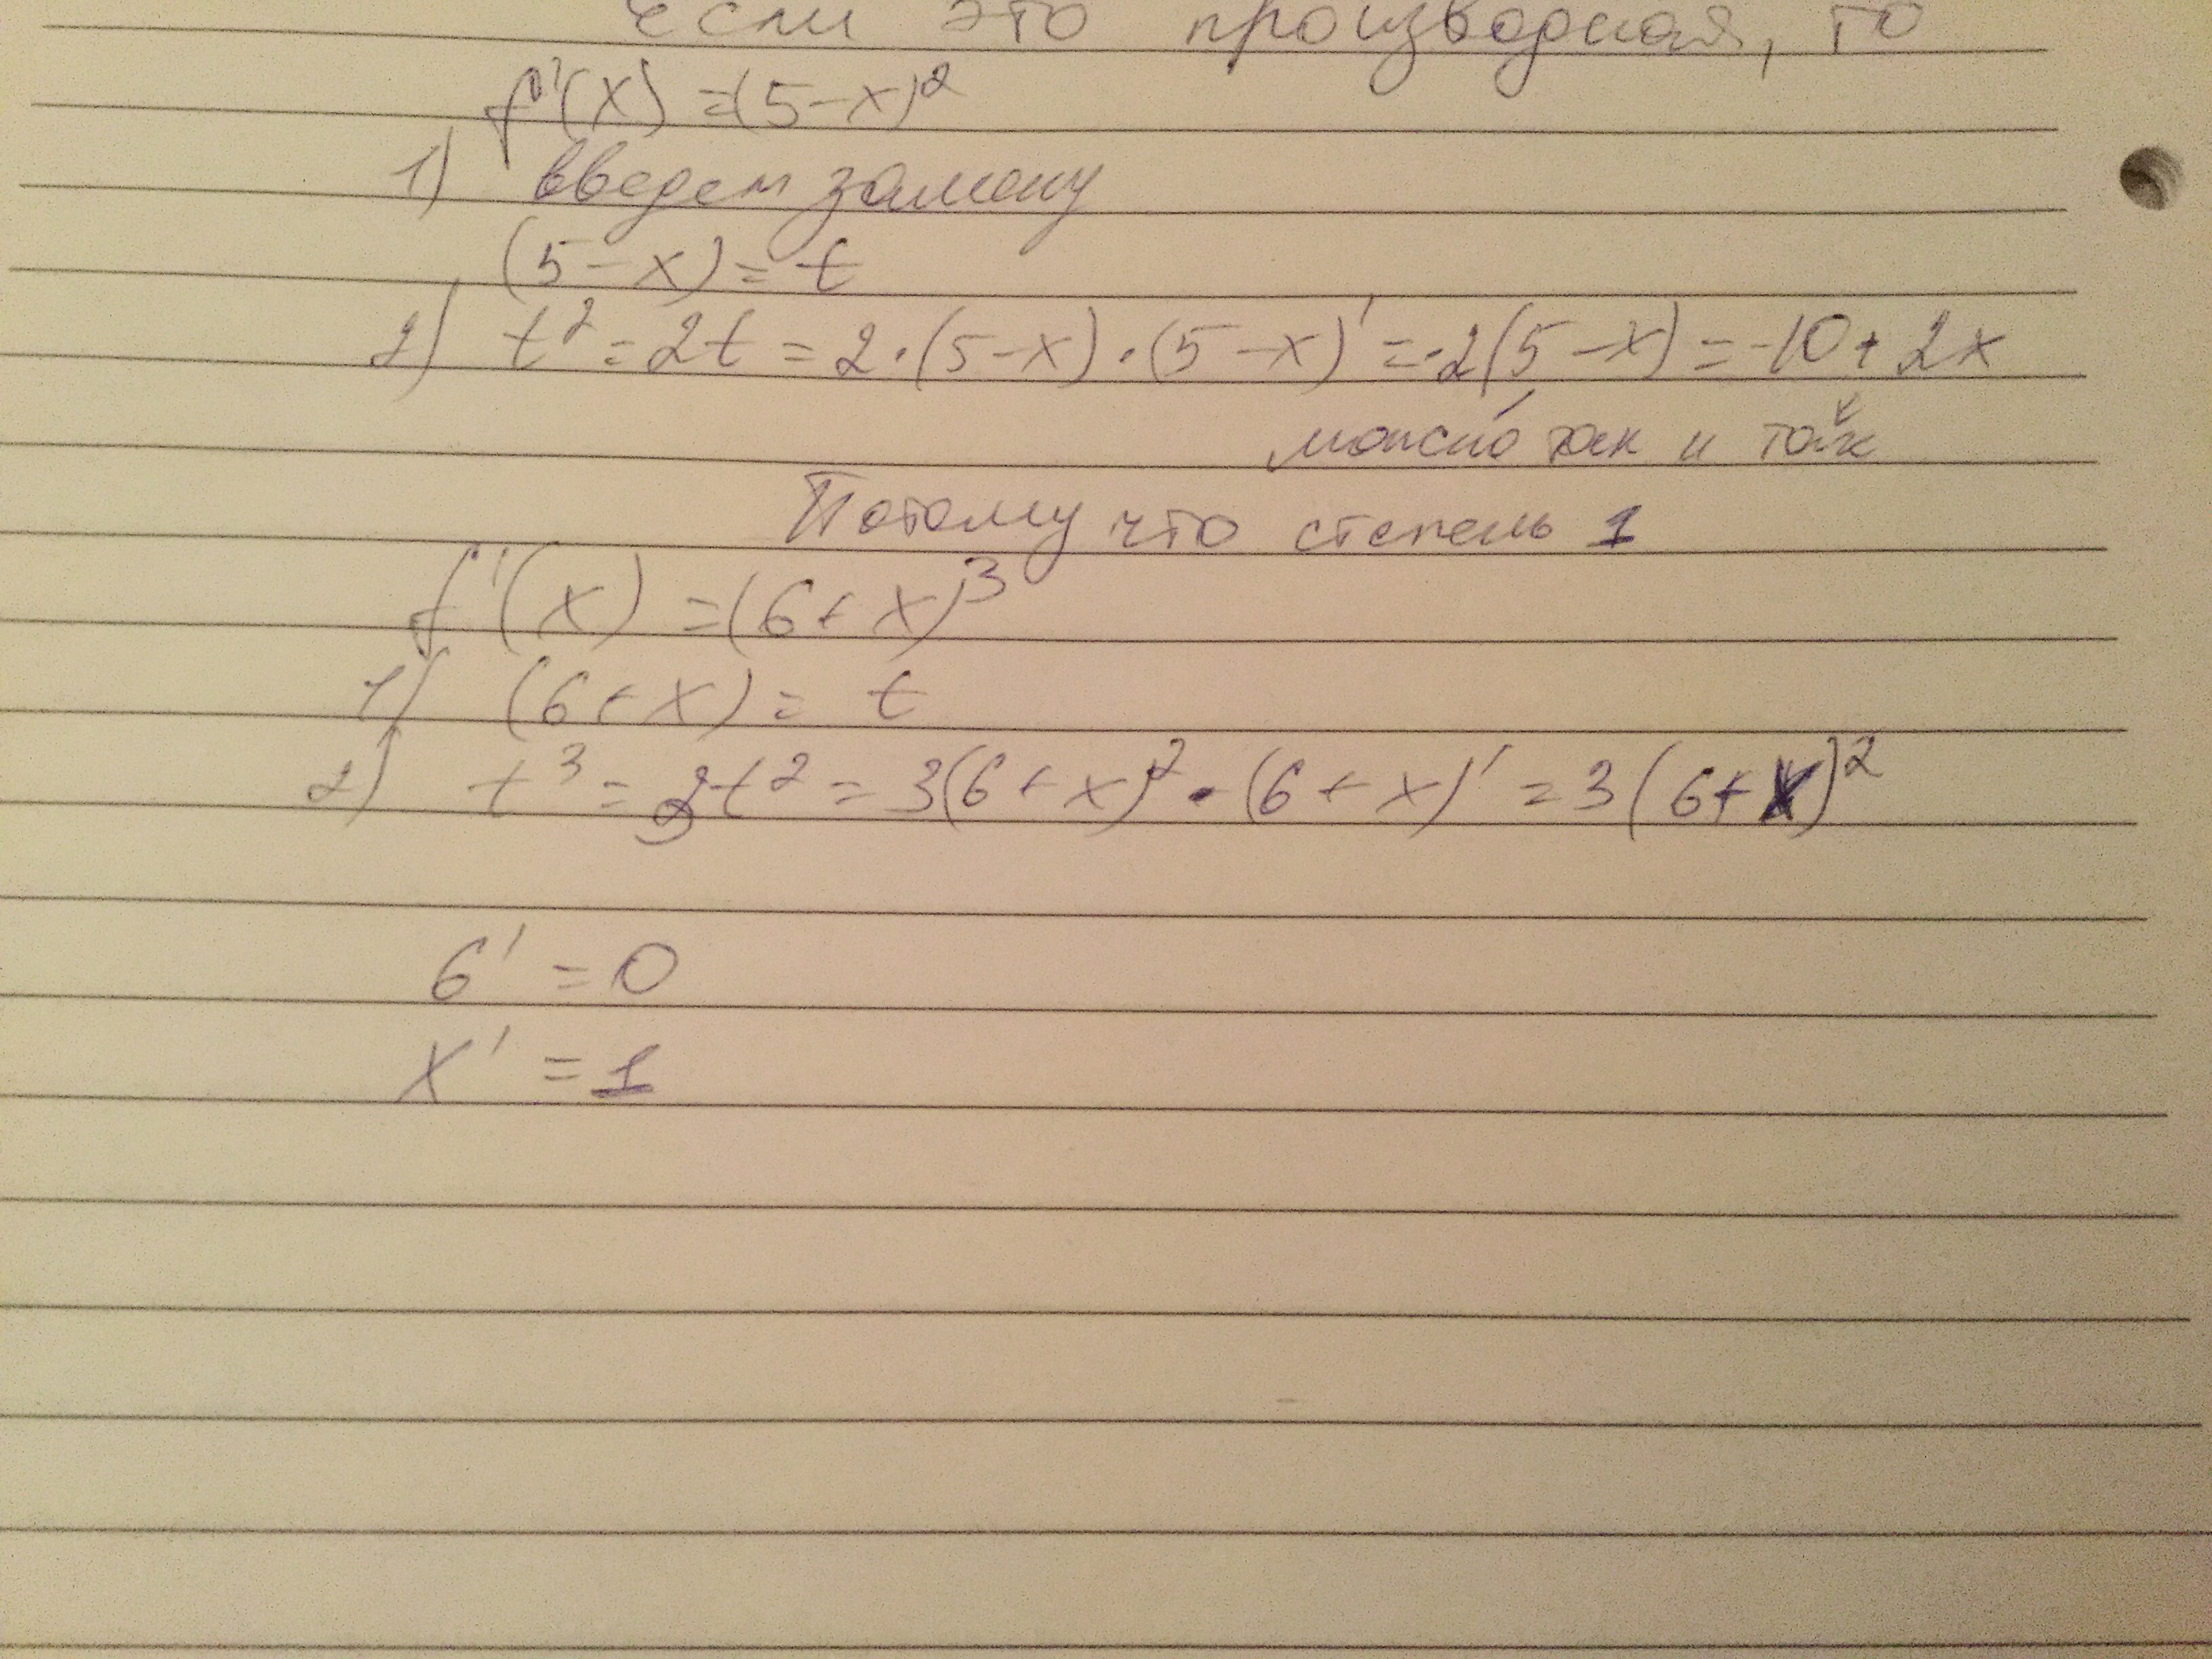 если это производная, то
f'(x) =(5-x)²
1) введем замену
(5-x)= t
2) t² = 2t = 2·(5-x)·(5-x)' = -2(5-x) = -10+2x
можно так и так
Потому что степень 1
f'(x) =(6+x)³
1) (6+x)= t
2) t³ = 3t² = 3(6+x)²·(6+x)' = 3(6+x)²
6' = 0
x' = 1